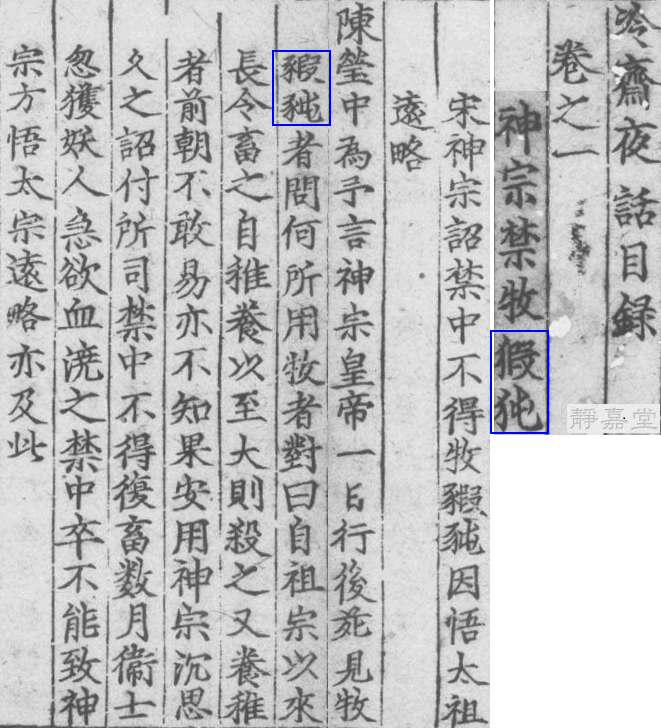 冷齋夜話目録
卷之一
神宗禁牧猳㹠
靜嘉堂
宋神宗詔禁中不得牧豭豘因悟太祖
遠略
陳瑩中為予言神宗皇帝一日行後苑見牧
豭豘者問何所用牧者對曰自祖宗以來
長令畜之自稚養以至大則殺之又養稚
者前朝不敢易亦不知果安用神宗沉思
久之詔付所司禁中不得復畜數月衞士
忽獲妖人急欲血澆之禁中卒不能致神
宗方悟太宗遠略亦及此